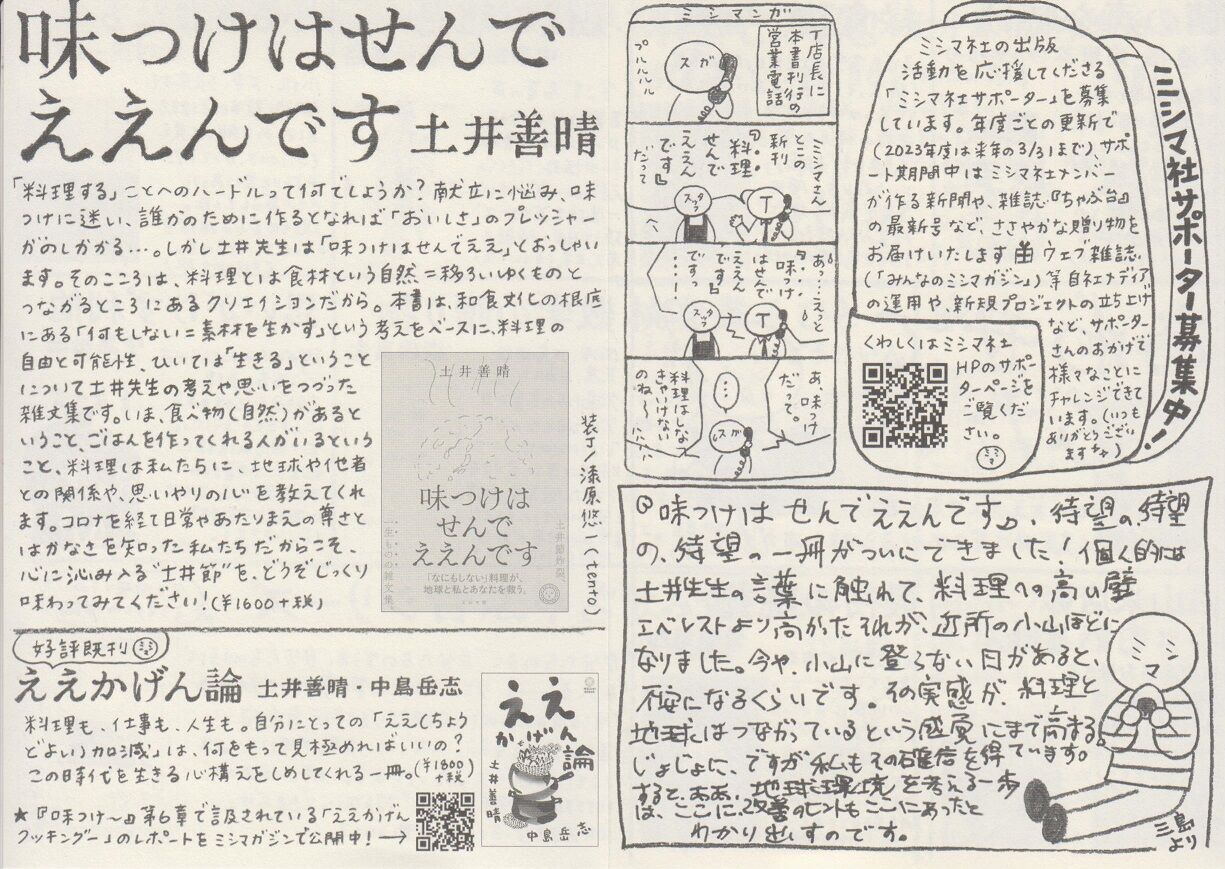 味つけはせんで
ええんです 土井善晴
「料理する」ことへのハードルって何でしょうか?献立に悩み、味
つけに迷い、誰かのために作るとなれば「おいしさ」のプレッシャー
がのしかかる…。しかし土井先生は「味つけはせんでええ」とおっしゃい
ます。そのこころは、料理とは食材という自然=移ろいゆくものと
つながるところにあるクリエイションだから。本書は、和食文化の根底
にある「何もしない=素材を生かす」という考えをベースに、料理の
自由と可能性、ひいては「生きる」ということ
について土井先生の考えや思いをつづった
雑文集です。いま、食べ物(自然)があると
いうこと、ごはんを作ってくれる人がいるという
こと、料理は私たちに、地球や他者
との関係や、思いやりの心を教えてくれ
ます。コロナを経て日常やあたりまえの尊さと
はかなさを知った私たちだからこそ、
心に沁み入る"土井節"を、どうぞじっくり
味わってみてください!(¥1600+税)
土井善晴
味つけは
せんで
ええんです
「なにもしない」料理が、
地球と私とあなたを救う。
土井節炸裂、
一生ものの雑文集。
装丁/漆原悠一(tento)
好評既刊
ええかげん論 土井善晴・中島岳志
料理も、仕事も、人生も。自分にとっての「ええ(ちょう
どよい)加減」は、何をもって見極めればいいの?
この時代を生きる心構えをしめしてくれる一冊。(¥1800
+税)
★『味つけ〜』第6章で言及されている「ええかげん
クッキングー」のレポートをミシマガジンで公開中!→
ええ
かげん
論
土井善晴
中島岳志
ミシマンガ
T店長に
本書刊行の
営業電話
スガ
プルルルル
ミシマさん
とこの
新刊
『料理
せんで
ええん
です』
だって
スタッフ
T
あっ…ええっと
『味つけ
はせんで
ええん
です』
ですっ
スタッフ
T
あ、味つけ
だって。
料理はしなく
ちゃいけない
のね〜
…
スガ
ミシマ社の出版
活動を応援してくださる
「ミシマ社サポーター」を募集
しています。年度ごとの更新で
(2023年度は来年の3/31まで)サポ
ート期間中はミシマ社メンバー
が作る新聞や、雑誌『ちゃぶ台』
の最新号など、ささやかな贈り物を
お届けいたします ウェブ雑誌
(「みんなのミシマガジン」)等自社メディア
の運用や、新規プロジェクトの立ち上げ
など、サポーター
さんのおかげで
様々なことに
チャレンジできて
います。(いつも
ありがとうござい
ます)
くわしくはミシマ社
HPのサポ
ーターページを
ご覧くだ
さい。
ミシマ社サポーター募集中!
『味つけはせんでええんです』、待望の、待望
の、待望の一冊がついにできました!個人的には
土井先生の言葉に触れて、料理への高い壁
エベレストより高かったそれが、近所の小山ほどに
なりました。今や、小山に登らない日があると、
不安になるくらいです。その実感が、料理と
地球はつながっているという感覚にまで高まる。
じょじょに、ですが私もその確信を得ています。
すると、ああ、地球環境を考える一歩
は、ここに、改善のヒントもここにあったと
わかり出すのです。
ミシマン
三島
より